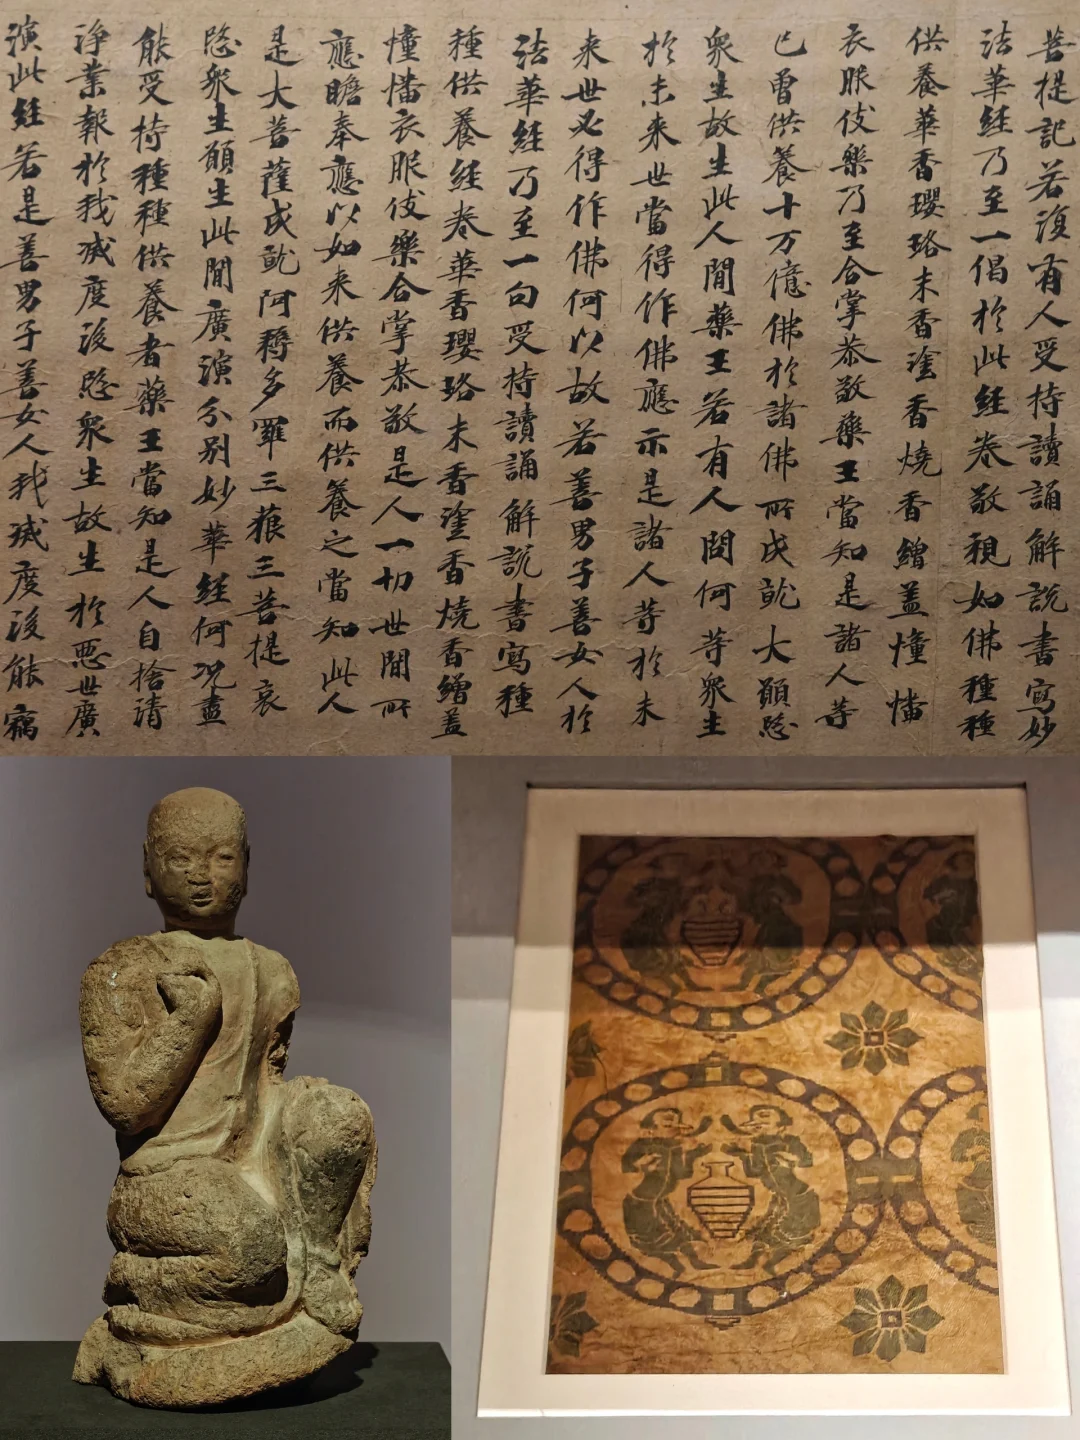 菩提記若復有人受持讀誦解說書寫妙
法華經乃至一偈於此經卷敬視如佛種種
供養華香瓔珞末香塗香燒香繒蓋憧幡
衣服伎樂乃至合掌恭敬藥王當知是諸人等
已曾供養十万億佛於諸佛所成就大願愍
衆生故生此人閒藥王若有人問何等衆生
於未來世當得作佛應示是諸人等於未
来世必得作佛何以故若善男子善女人於
法華經乃至一句受持讀誦解說書寫種
種供養經卷華香瓔珞末香塗香燒香繒蓋
憧幡衣服伎樂合掌恭敬是人一切世閒所
應瞻奉應以如来供養而供養之當知此人
是大菩薩成就阿耨多羅三藐三菩提哀
愍衆生願生此閒廣演分别妙華經何况盡
能受持種種供養者藥王當知是人自捨清
淨業報於我滅度後愍衆生故生於惡世廣
演此經若是善男子善女人我滅度後能竊